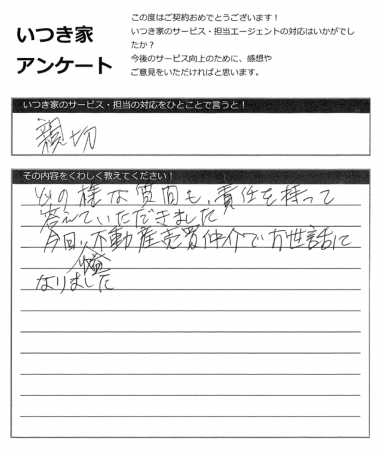 いつき家
アンケート
この度はご契約おめでとうございます！
いつき家のサービス・担当エージェントの対応はいかがでし
たか？
今後のサービス向上のために、感想や
ご意見をいただければと思います。
いつき家のサービス・担当の対応をひとことで言うと！
親切
その内容をくわしく教えてください！
どの様な質問も、責任を持って
答えていただきました
今回、不動産売買仲介でお世話に
なりました